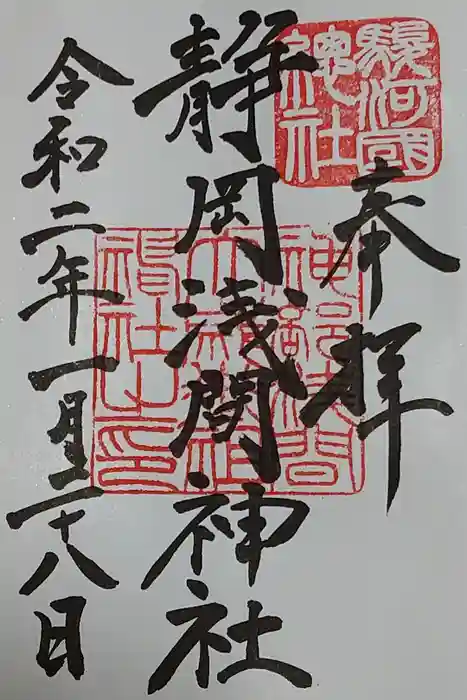 駿河國
總社
奉拝
静岡浅間神社
令和二年一月二十八日